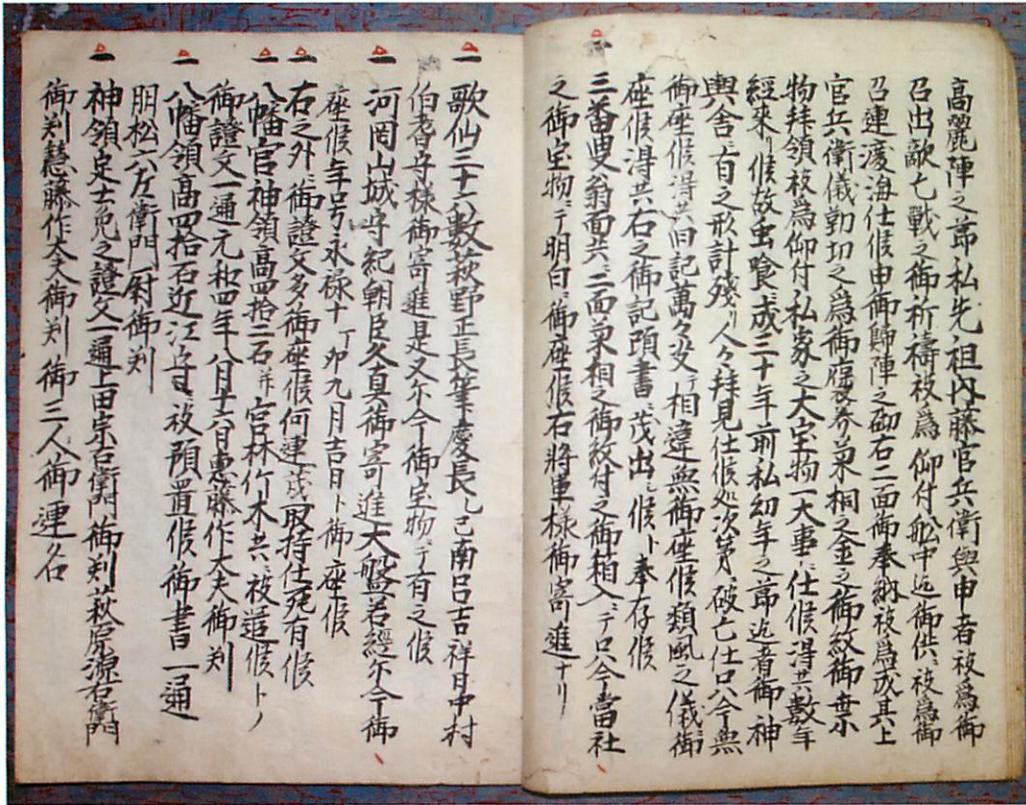 高麗陣之節私先祖内藤官兵衛與申者被爲御
召出敵亡戦之御祈禱被爲仰付舩中迄御供ニ被爲御
召連渡海仕候由御歸陣之砌右二面御奉納被爲成其上
官兵衛儀勤切之爲御褒美菊桐之金之御紋御
物拝領被爲仰付私家之大宝物一大事ニ仕候得共數年
經来リ候故虫喰ニ成三十年前私幼年之節迄者御神
輿舎ニ有之形計残リ人々拝見仕候処次第ニ破亡仕口今無
御座候得共旧記萬々文ニテ相違無御座候類風之儀御
座候得共右之御記頭書ニ茂出シ候ト奉存候
三番叟翁面共ニ二面菊桐之御紋付之御箱入ニテ口今當社
之御宝物ニテ明白ニ御座候右將軍様御寄進ナリ
一 歌仙三十六數萩野正長筆慶長乙巳南呂吉祥日中村
伯耆守様御寄進是又尓今御宝物ニテ有之候
一 河岡山城守紀朝臣久真御寄進大盤若經尓今御
座候年号永禄十丁卯九月吉日ト御座候
一 右之外ニ御證文多御座候何連茂取持仕死有候
一 八幡宮神領高四拾二石并ニ宮林竹木共ニ被遣候トノ
御證文一通元和四年八月十六日惠藤作大夫御判
一 八幡領高四拾石近江守ヨリ被預置候御書一通
朋松六左衛門尉御判
一 神領定士免之證文一通上田宗右衛門御判萩原源右衛門
御判慧藤作大夫御判御三人御連名